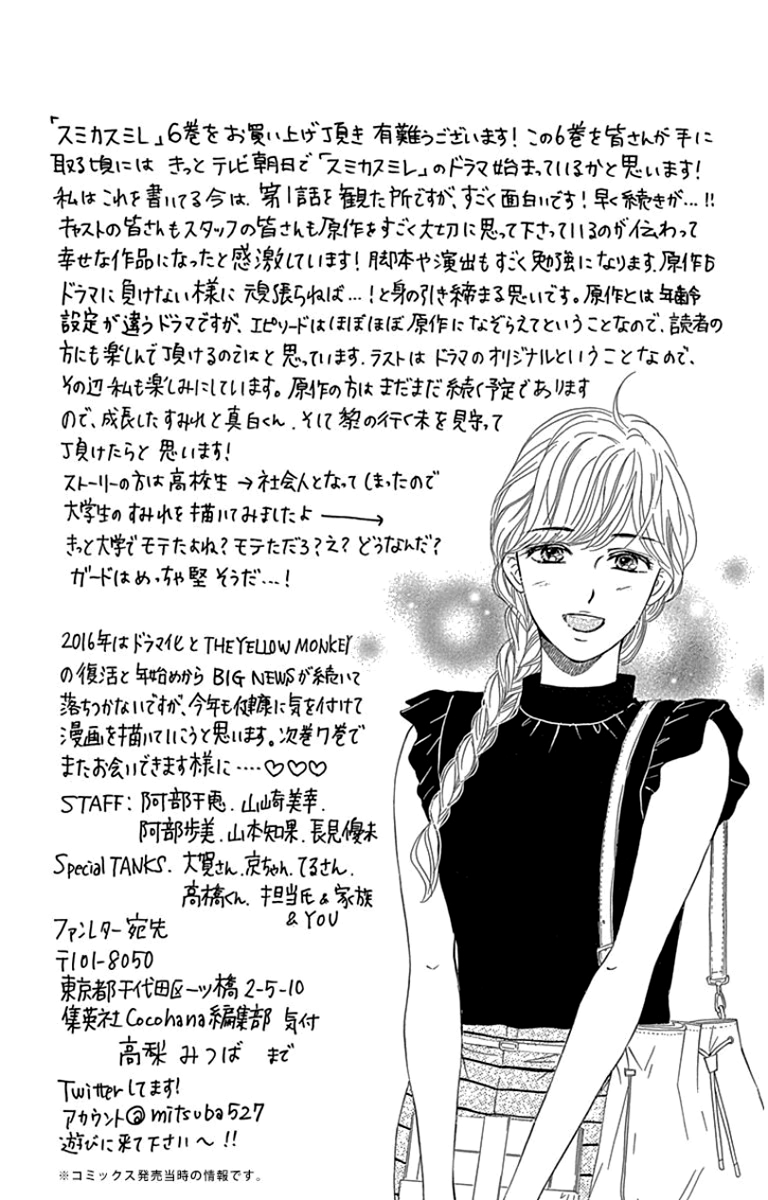 「スミカスミレ」6巻をお買い上げ頂き 有難うございます!この6巻を皆さんが手に
取る頃には きっとテレビ朝日で「スミカスミレ」のドラマ始まっているかと思います!
私はこれを書いてる今は、第1話を観た所ですが、すごく面白いです!早く続きが…!!
キャストの皆さんもスタッフの皆さんも原作をすごく大切に思って下さっているのが伝わって
幸せな作品になったと感激しています!脚本や演出もすごく勉強になります。原作も
ドラマに負けない様に 頑張らねば…!と身の引き締まる思いです。原作とは年齢
設定が違うドラマですが、エピソードはほぼほぼ原作になぞらえてということなので、読者の
方にも楽しんで頂けるのではと思っています。ラストはドラマのオリジナルということなので、
その辺私も楽しみにしています。原作の方はまだまだ続く予定であります
ので、成長したすみれと真白くん、そして黎の行く末を見守って
頂けたらと思います!
ストーリーの方は高校生→社会人となってしまったので
大学生のすみれを描いてみましたよ→
きっと大学でモテたよね?モテただろ?え?どうなんだ?
ガードはめっちゃ堅そうだ…!
2016年はドラマ化とTHE YELLOW MONKEY
の復活と年始めからBIG NEWSが続いて
落ちつかないですが、今年も健康に気を付けて
漫画を描いていこうと思います。次巻7巻で
またお会いできます様に……♡♡♡
STAFF:阿部千恵、山崎美幸、
阿部歩美、山本知果、長見優未
Special TANKS. 大寛さん、京ちゃん、てるさん、
高橋くん、担当氏&家族
&YOU
ファンレター宛先
〒101-8050
東京都千代田区一ツ橋2-5-10
集英社Cocohana編集部 気付
高梨みつば まで
Twitterしてます!
アカウント@mitsuba527
遊びに来て下さい〜!!
※コミックス発売当時の情報です。